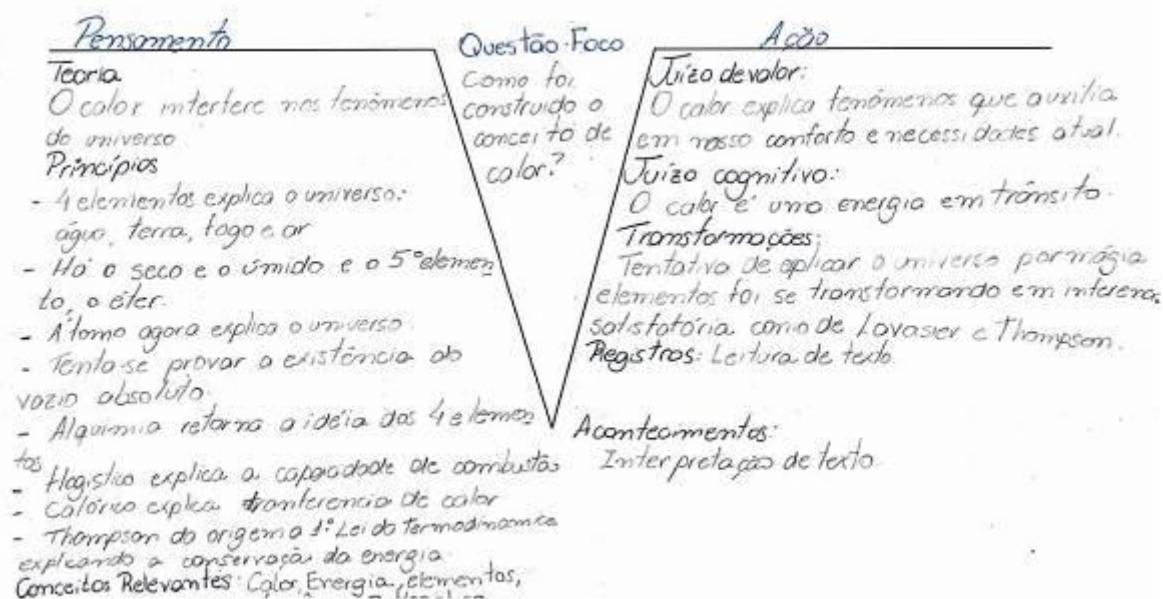 Pensamento
Teoria
O calor interfere nos fenômenos
do universo
Princípios
- 4 elementos explica o universo:
água, terra, fogo e ar
- Há o seco e o úmido e o 5° elemen
to, o éter.
- Átomo agora explica o universo
- Tenta-se provar a existência do
vazio absoluto.
- Alquimia retorna a idéia dos 4 elemen
tos
- Flogístico explica a capacidade de combustão
- Calórico explica tranferencia de calor
- Thompson da origem a 1ª Lei da Termodinamica
explicando a conservação da energia
Conceitos Relevantes: Calor, Energia, elementos,
Questão-Foco
Como foi
construído o
conceito de
calor?
Ação
Juízo de valor:
O calor explica fenômenos que auxilia
em nosso conforto e necessidades atual.
Juízo cognitivo:
O calor é uma energia em trânsito.
Transformações:
Tentativa de aplicar o universo por mágia
elementos foi se transformando em
satisfatória como de Lavasier e Thompson.
Registros: Leitura de texto
Acontecimentos:
Interpretação de texto